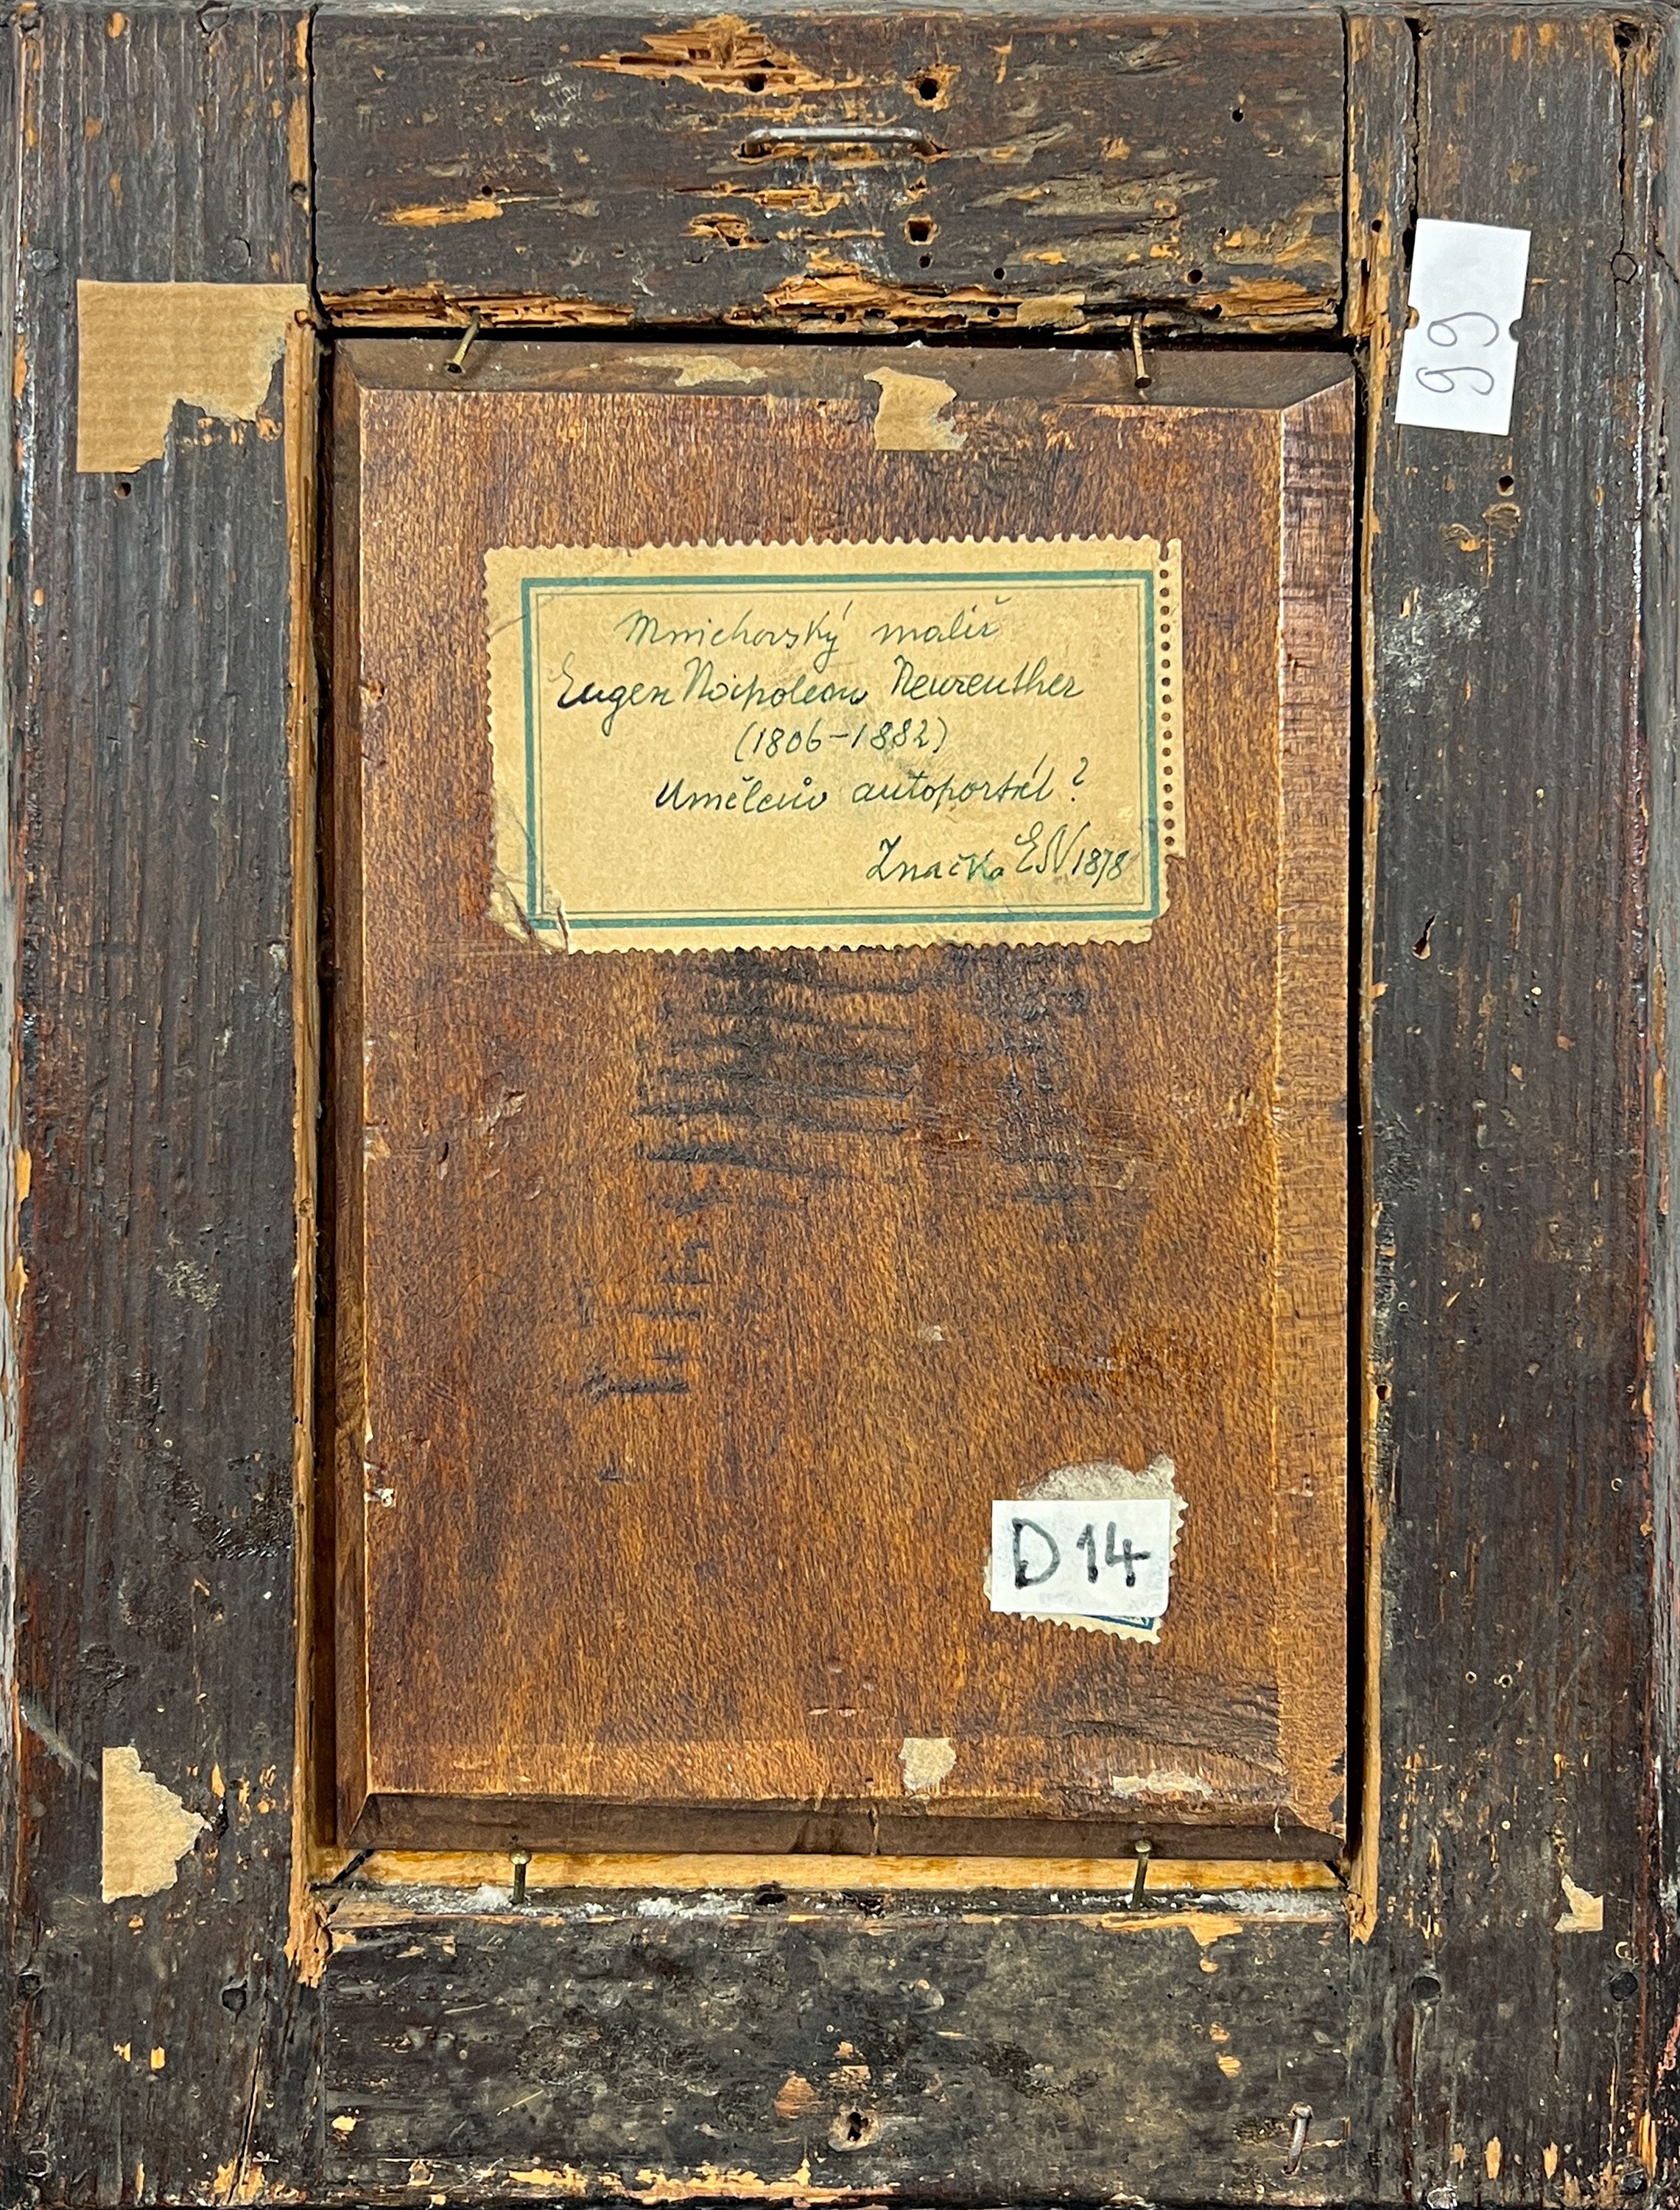 99
Mnichovský malíř
Eugen Napoleon Neureuther
(1806-1882)
Umělcův autoportrét?
Značka EN 1878
D14